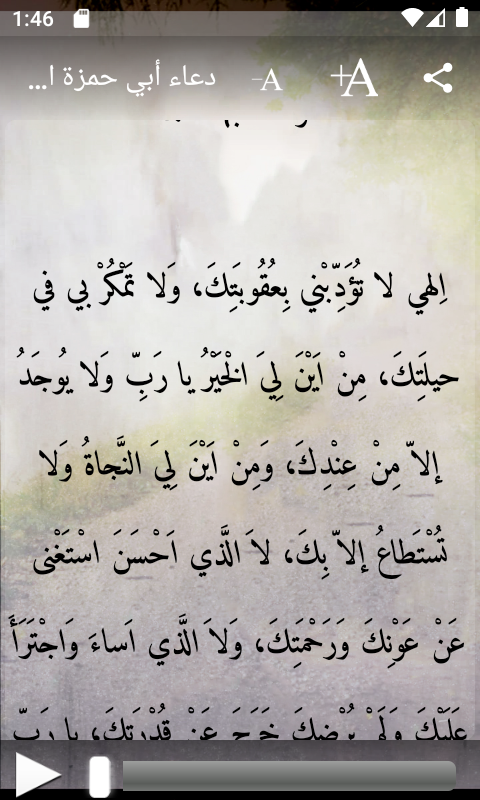 1:46
دعاء أبي حمزة ا...
-A
+A
اِلهي لا تُؤَدِّبْني بِعُقُوبَتِكَ، وَلا تَمْكُرْ بي في
حيلَتِكَ، مِنْ اَيْنَ لِيَ الْخَيْرُ يا رَبِّ وَلا يُوجَدُ
إلاّ مِنْ عِنْدِكَ، وَمِنْ اَيْنَ لِيَ النَّجاةُ وَلا
تُسْتَطاعُ إلاّ بِكَ، لاَ الَّذي اَحْسَنَ اسْتَغْنى
عَنْ عَوْنِكَ وَرَحْمَتِكَ، وَلاَ الَّذي اَساءَ وَاجْتَرَأَ
عَلَيْكَ وَلَمْ يُرْضِكَ خَرَجَ عَنْ قُدْرَتِكَ، يا رَبِّ